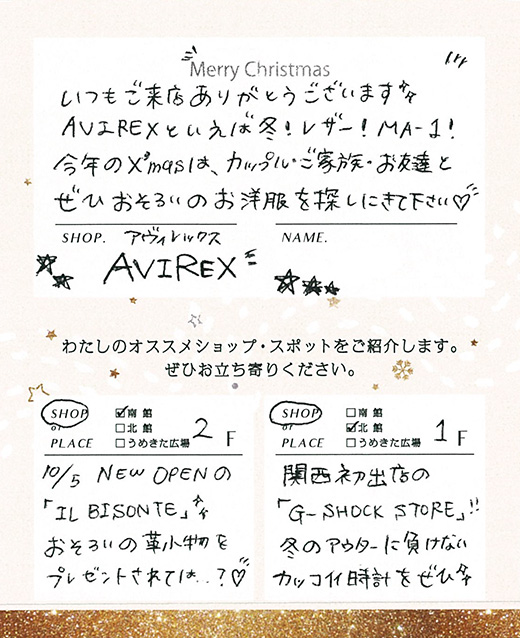 Merry Christmas
いつもご来店ありがとうございます
AVIREXといえば冬!レザー!MA-1!
今年のX'masは、カップル・ご家族・お友達と
ぜひおそろいのお洋服を探しにきて下さい♡
SHOP. アヴィレックス
AVIREX
NAME.
わたしのオススメショップ・スポットをご紹介します。
ぜひお立ち寄りください。
SHOP or PLACE
☑南館
□北館
□うめきた広場
2F
10/5 NEW OPENの
「IL BISONTE」
おそろいの革小物を
プレゼントされては..?♡
SHOP or PLACE
□南館
☑北館
□うめきた広場
1F
関西初出店の
「G-SHOCK STORE」!!
冬のアウターに負けない
カッコイイ時計をぜひ